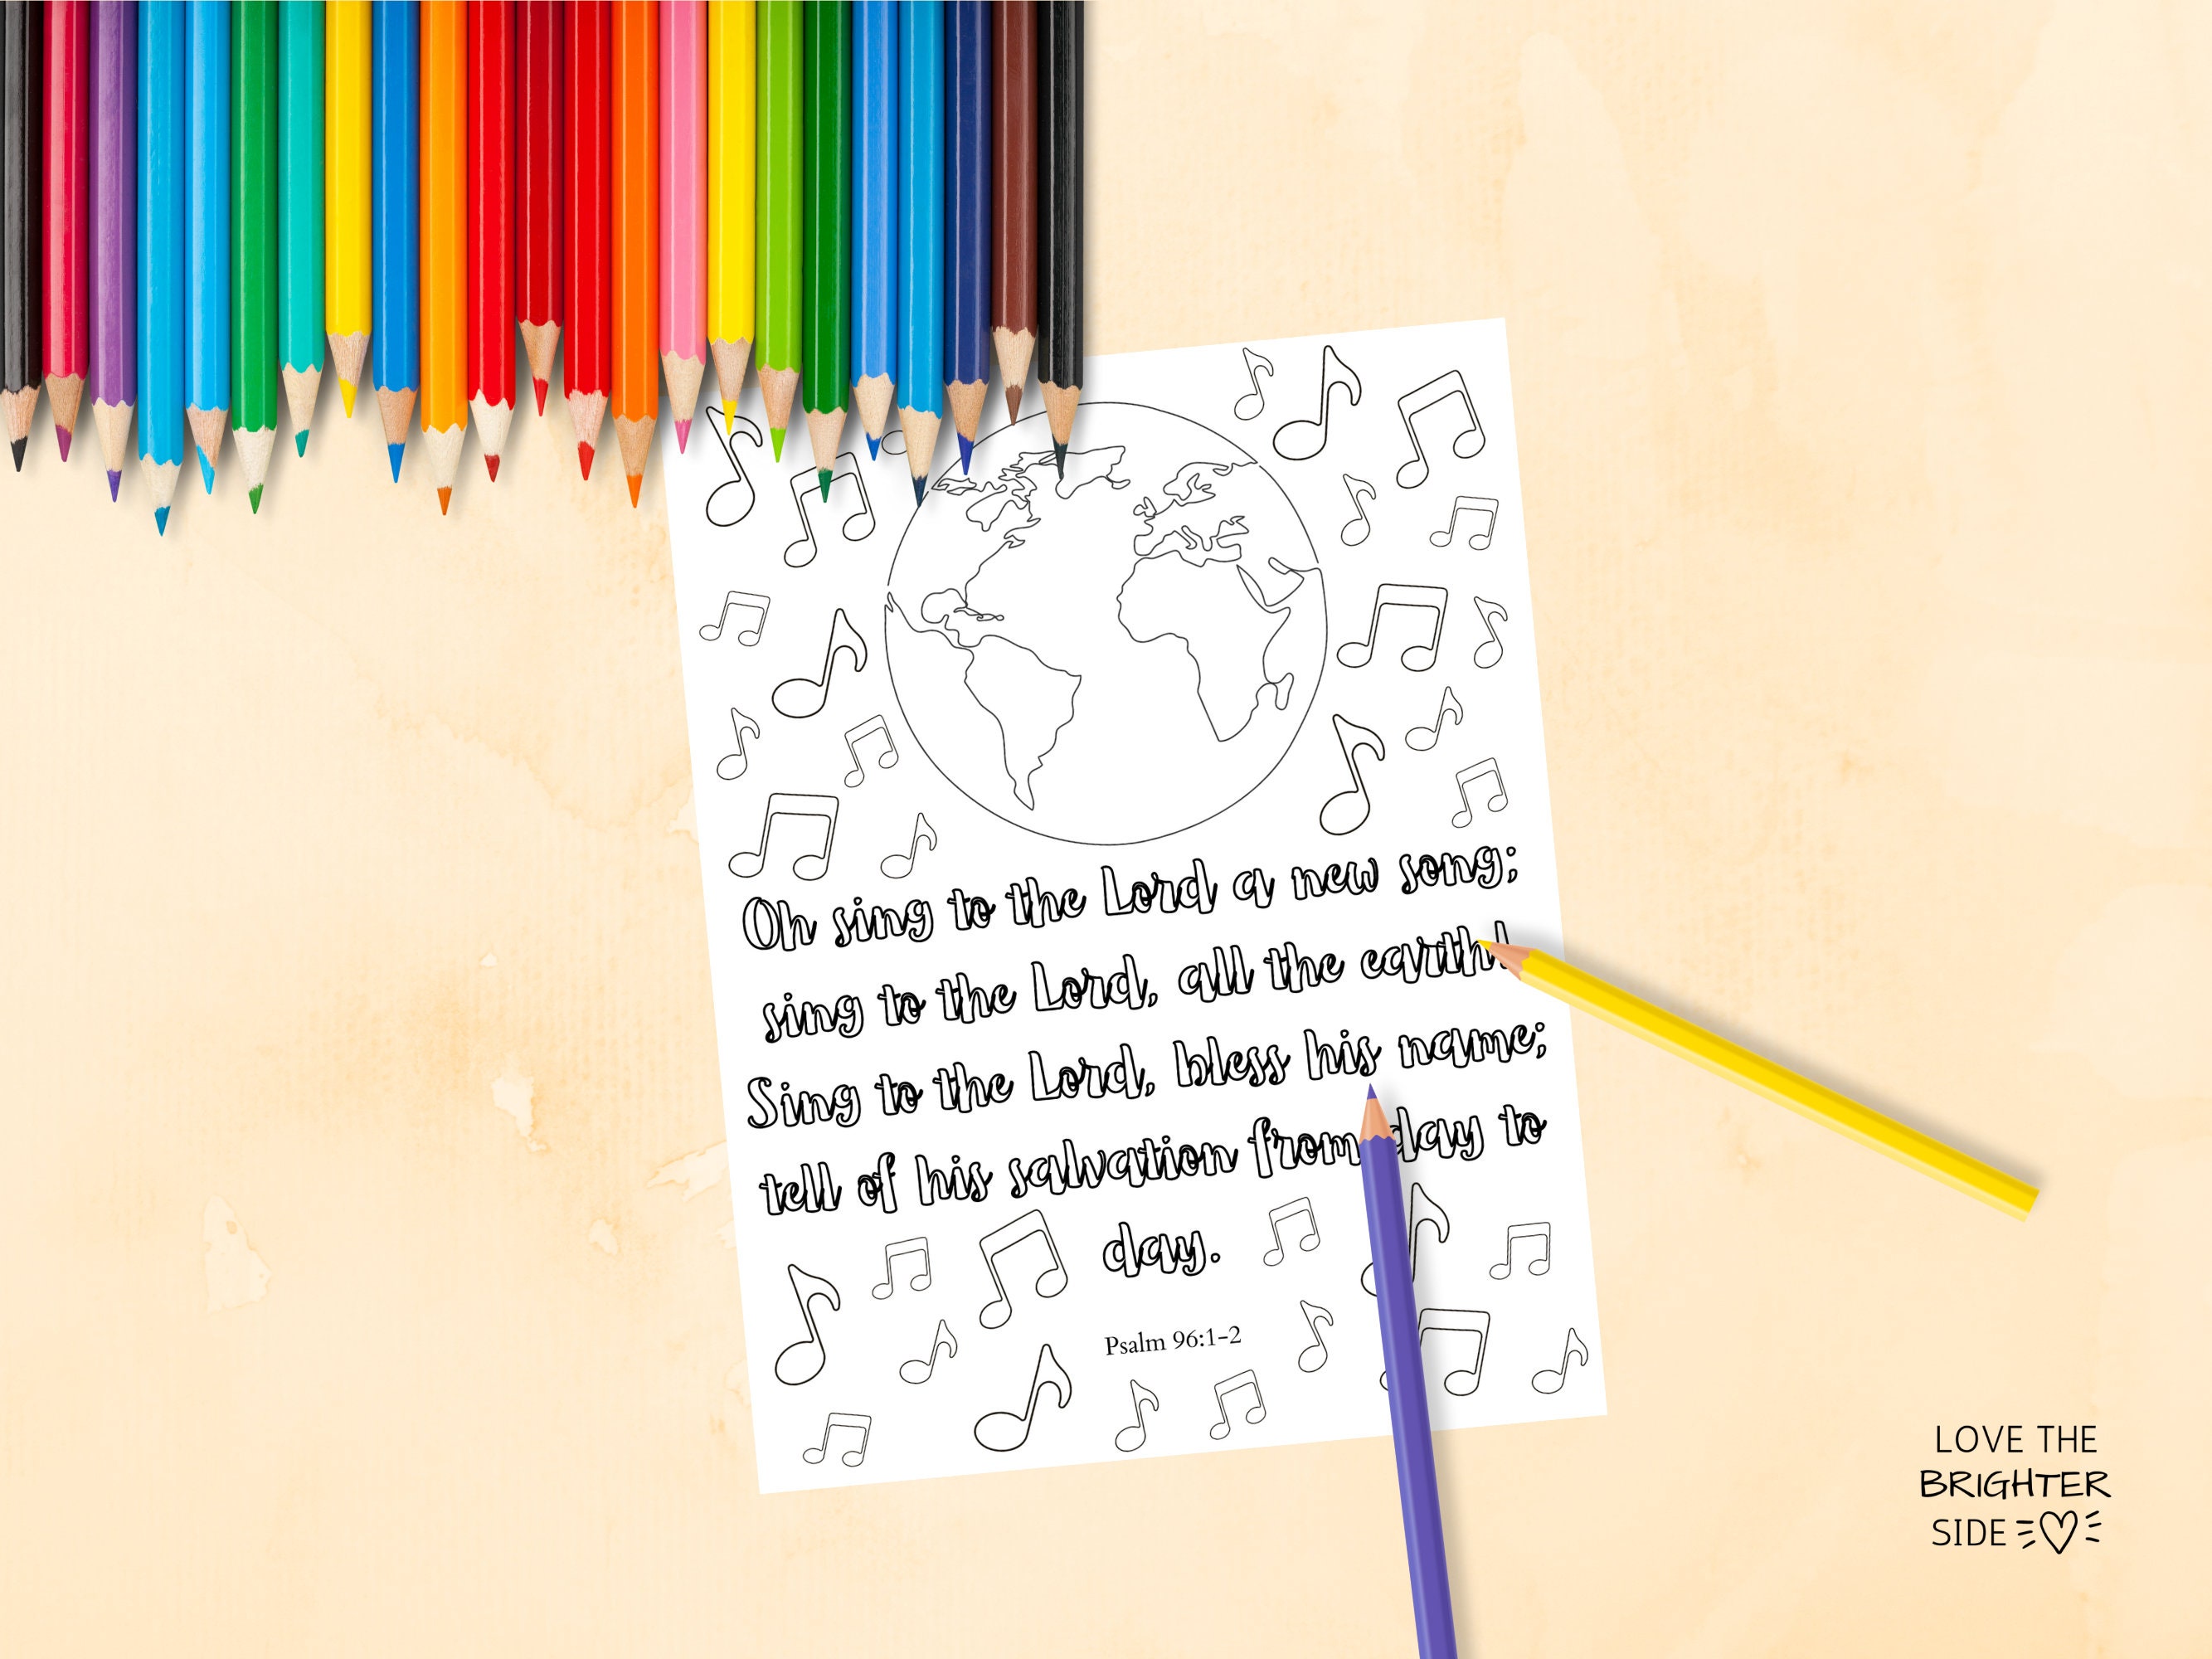 Oh sing to the Lord a new song;
sing to the Lord, all the earth!
Sing to the Lord, bless his name;
tell of his salvation from day to
day.
Psalm 96:1-2
LOVE THE
BRIGHTER
SIDE